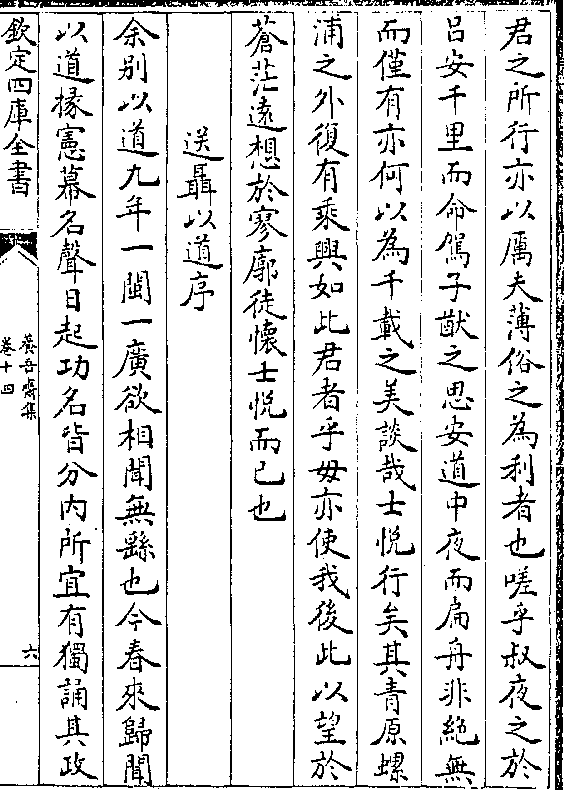 君之所行亦以厲夫薄俗之為利者也嗟乎叔夜之於
吕安千里而命駕子猷之思安道中夜而扁舟非絶無
而僅有亦何以為千載之美談哉士悦行矣其青原螺
浦之外復有乘興如此君者乎毋亦使我後此以望於
蒼茫遠想於寥廓徒懐士悦而已也
送聶以道序
余别以道九年一閩一廣欲相聞無繇也今春來歸聞
以道掾憲幕名聲日起功名皆分内所宜有獨誦其政
欽定四庫全書
養吾齋集
卷十四
六